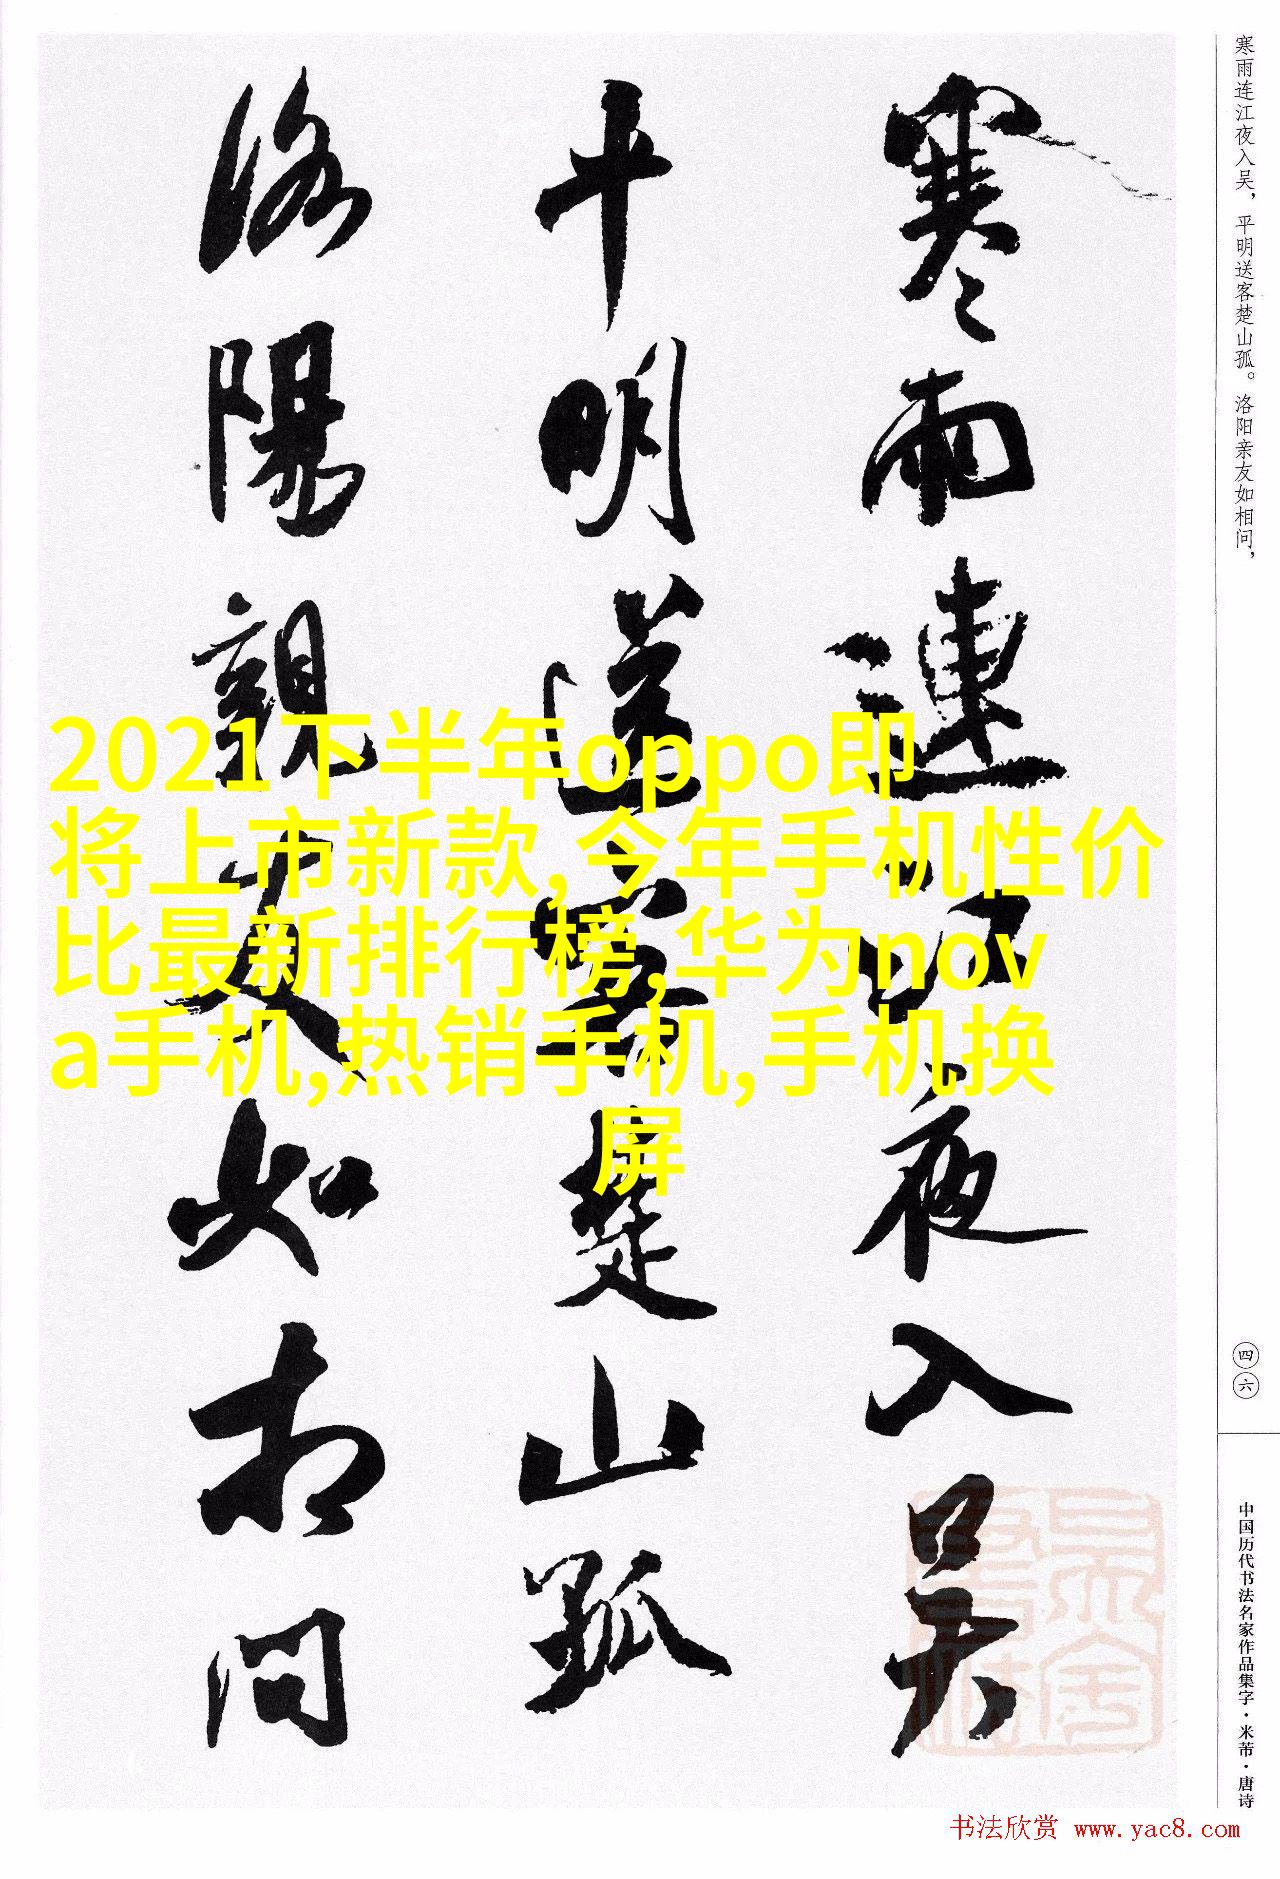 寒雨连江夜入吴，平明送客楚山孤。洛阳亲友如相问，
四六
中国历代书法名家作品集字·米芾·唐诗
寒雨連江夜入吴
平明送客楚山孤
洛陽親友如相問
2021下半年oppo即
将上市新款,今年手机性价
比最新排行榜,华为nov
a手机,热销手机,手机换
屏
书法欣赏 www.yac8.com